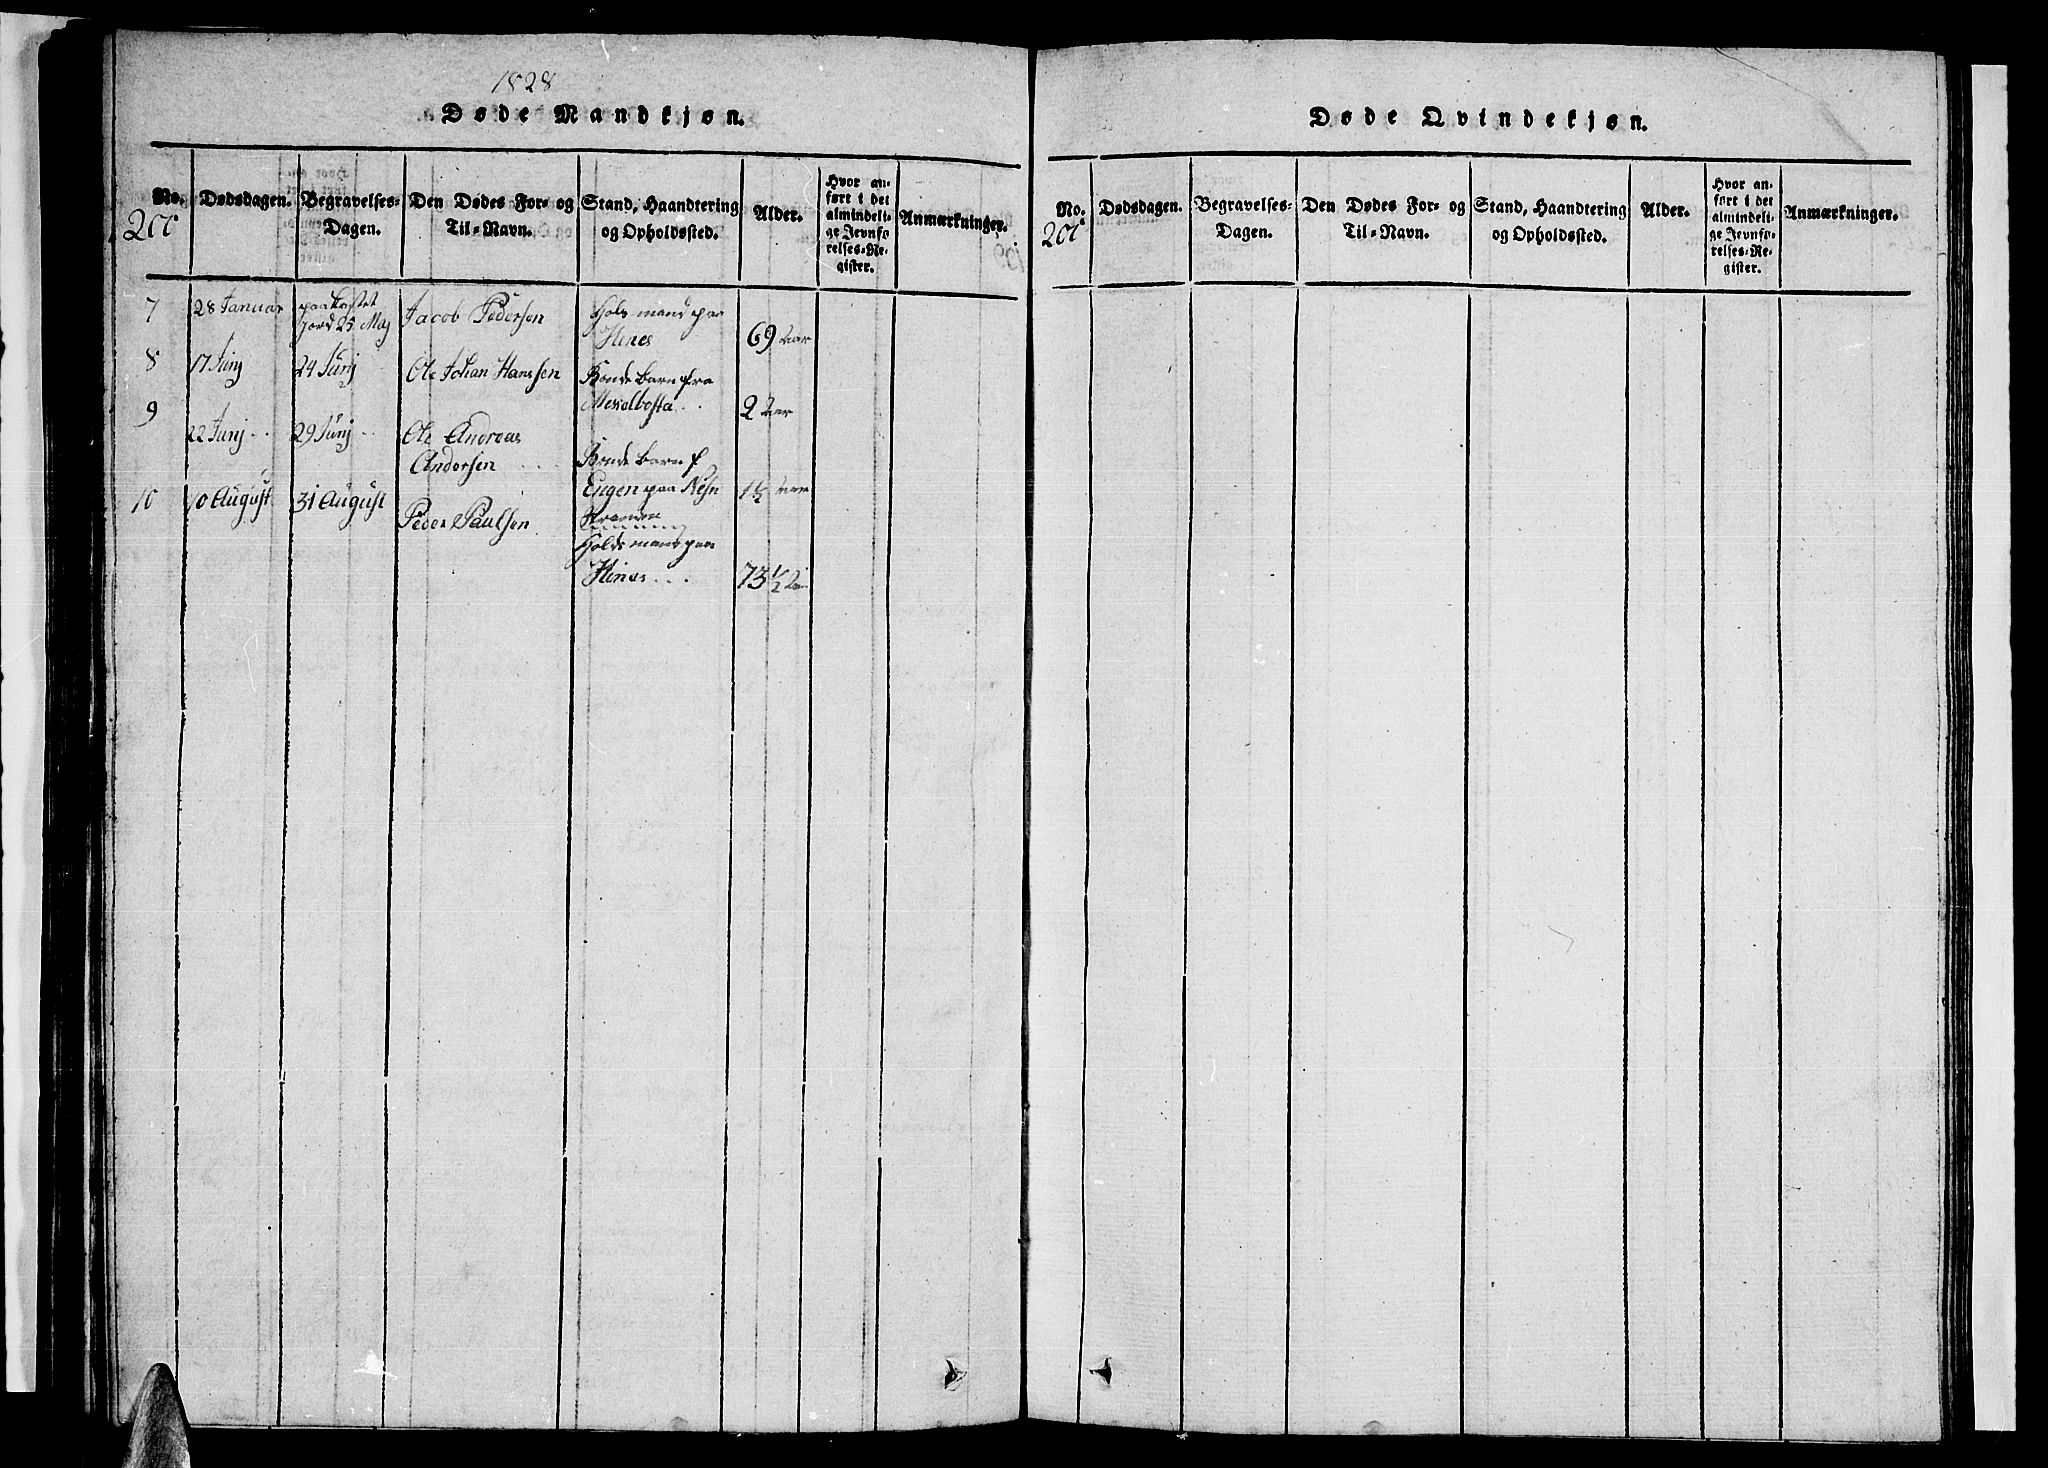 1828
Døde Mandkjøn.
No.
Dødsdagen.
Begravelses-
Dagen.
Den Dødes For- og
Til-Navn.
Stand, Haandtering
og Opholdssted.
Alder.
Hvor an-
ført i det
almindeli-
ge Jevnfø-
relses-Re-
gister.
Anmærkninger.
7
28 Januar
paakastet
Jord 25 Maj
Jacob Pedersen
mand paa
Hines
69 Aar
8
17 Junj
24 Junj
Ole Johan Hanssen
Bonde barn fra
2 Aar
9
22 Junj
29 Junj
Ole Andreas
Andersen
Bonde barn f
Engen paa Nesn
1½ Aar
10
10 August
31 August
Peder Paulsen
Holds mand paa
Hines
73½ Aar
Døde Qvindekjøn.
No.
Dødsdagen.
Begravelses-
Dagen.
Den Dødes For- og
Til-Navn.
Stand, Haandtering
og Opholdssted.
Alder.
Hvor an-
ført i det
almindeli-
ge Jevnfø-
relses-Re-
gister.
Anmærkninger.